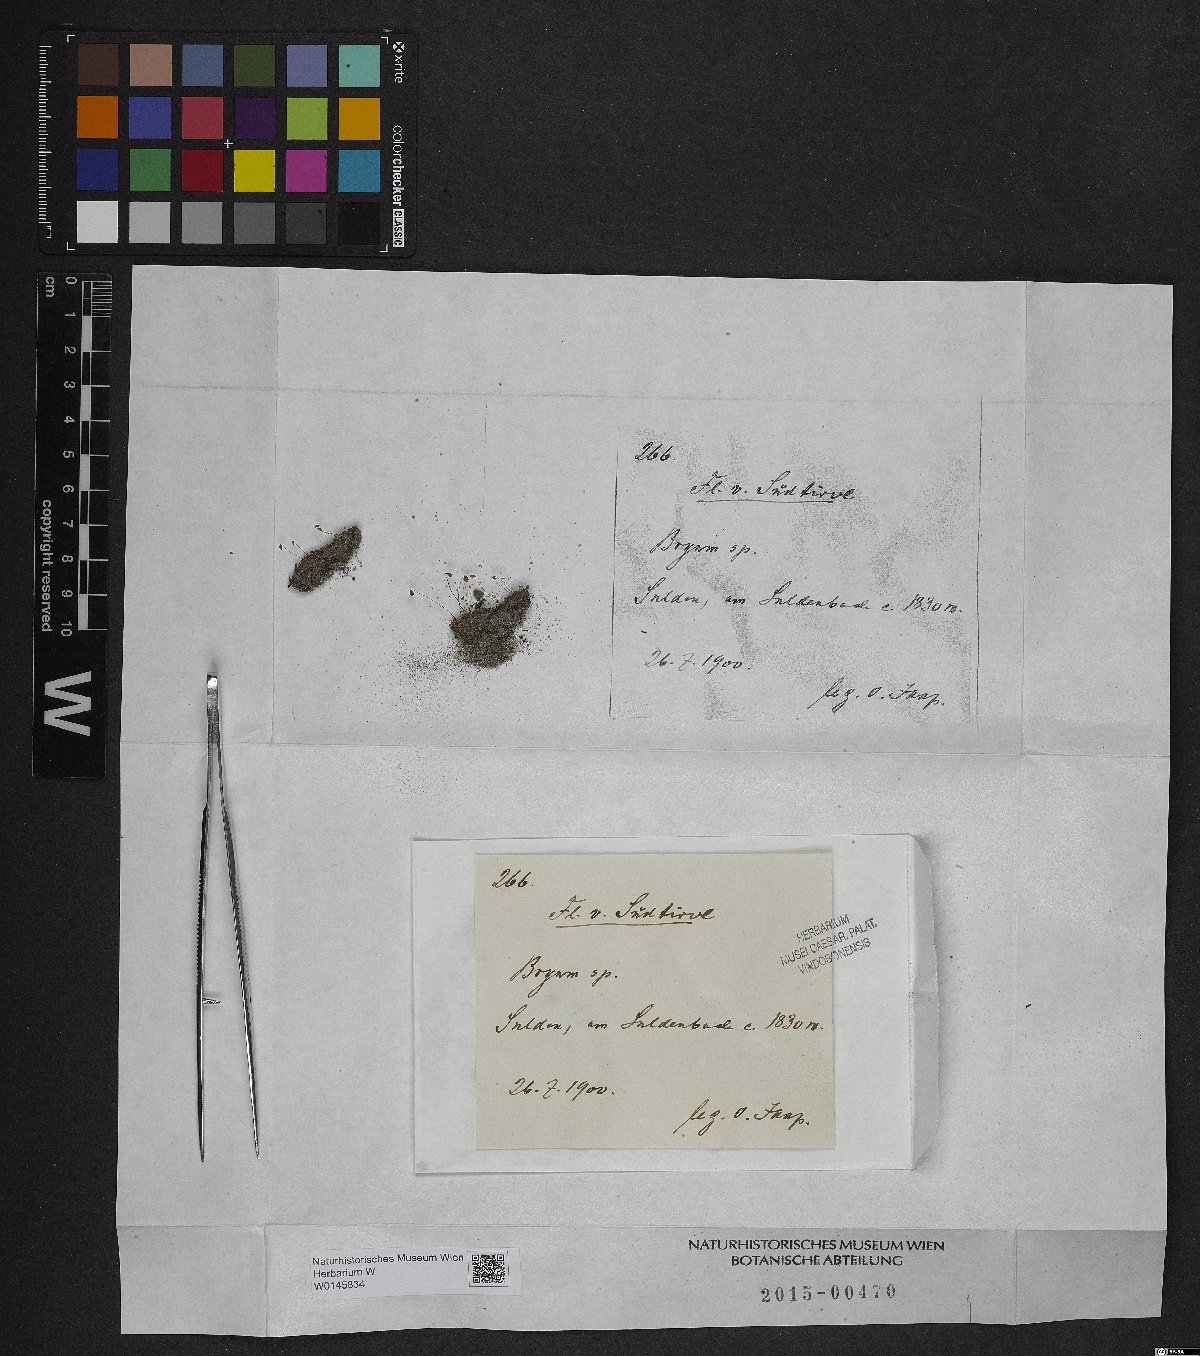 x-rite
colorchecker CLASSIC
0
cm
1
2
3
4
5
6
7
8
9
10
copyright reserved
W
266.
Fl. v. Südtirol
Bryum sp.
Sulden, am Suldenbach c. 1830 m.
26. 7. 1900.
leg. O. Jaap.
266.
Fl. v. Südtirol
Bryum sp.
Sulden, am Suldenbach c. 1830 m.
26. 7. 1900.
leg. O. Jaap.
HERBARIUM
MUSEI CAESAR. PALAT.
VINDOBONENSIS
Naturhistorisches Museum Wien
Herbarium W
W0145834
NATURHISTORISCHES MUSEUM WIEN
BOTANISCHE ABTEILUNG
2015-00470